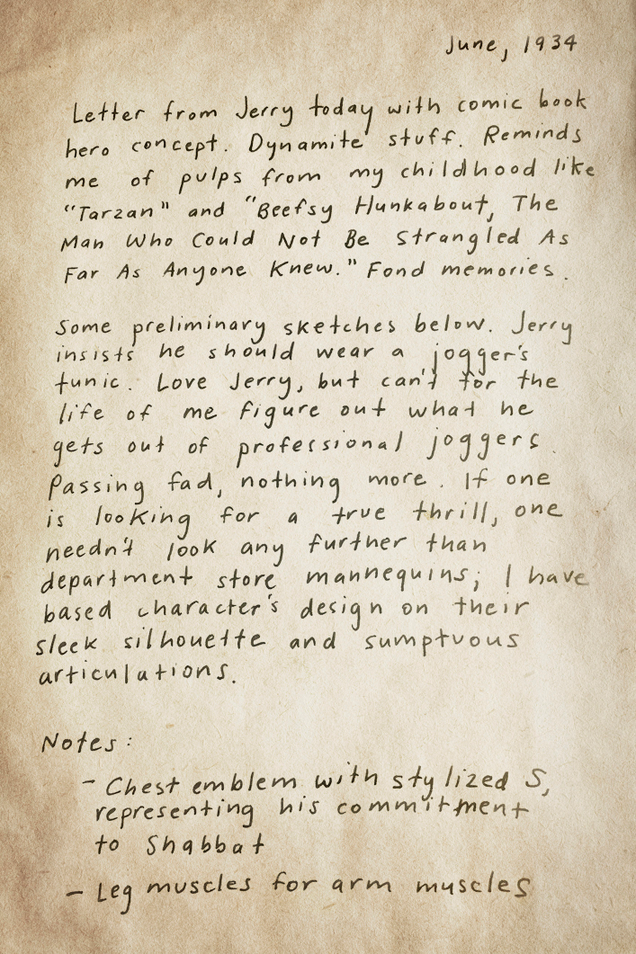 June, 1934
Letter from Jerry today with comic book
hero concept. Dynamite stuff. Reminds
me of pulps from my childhood like
"Tarzan" and "Beefsy Hunkabout, The
Man Who Could Not Be Strangled As
Far As Anyone Knew." Fond memories.
Some preliminary sketches below. Jerry
insists he should wear a jogger's
tunic. Love Jerry, but can't for the
life of me figure out what he
gets out of professional joggers.
Passing fad, nothing more. If one
is looking for a true thrill, one
needn't look any further than
department store mannequins; I have
based character's design on their
sleek silhouette and sumptuous
articulations.
Notes:
- Chest emblem with stylized S,
representing his commitment
to Shabbat
- Leg muscles for arm muscles